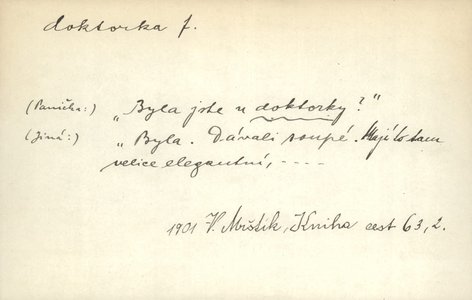 doktorka f.
(Panička:) „Byla jste u doktorky?"
(Jiná:) „Byla. Dávali soupé. Mají to tam
velice elegantní, ----
1901 V. Mrštík, Kniha cest 63, 2.